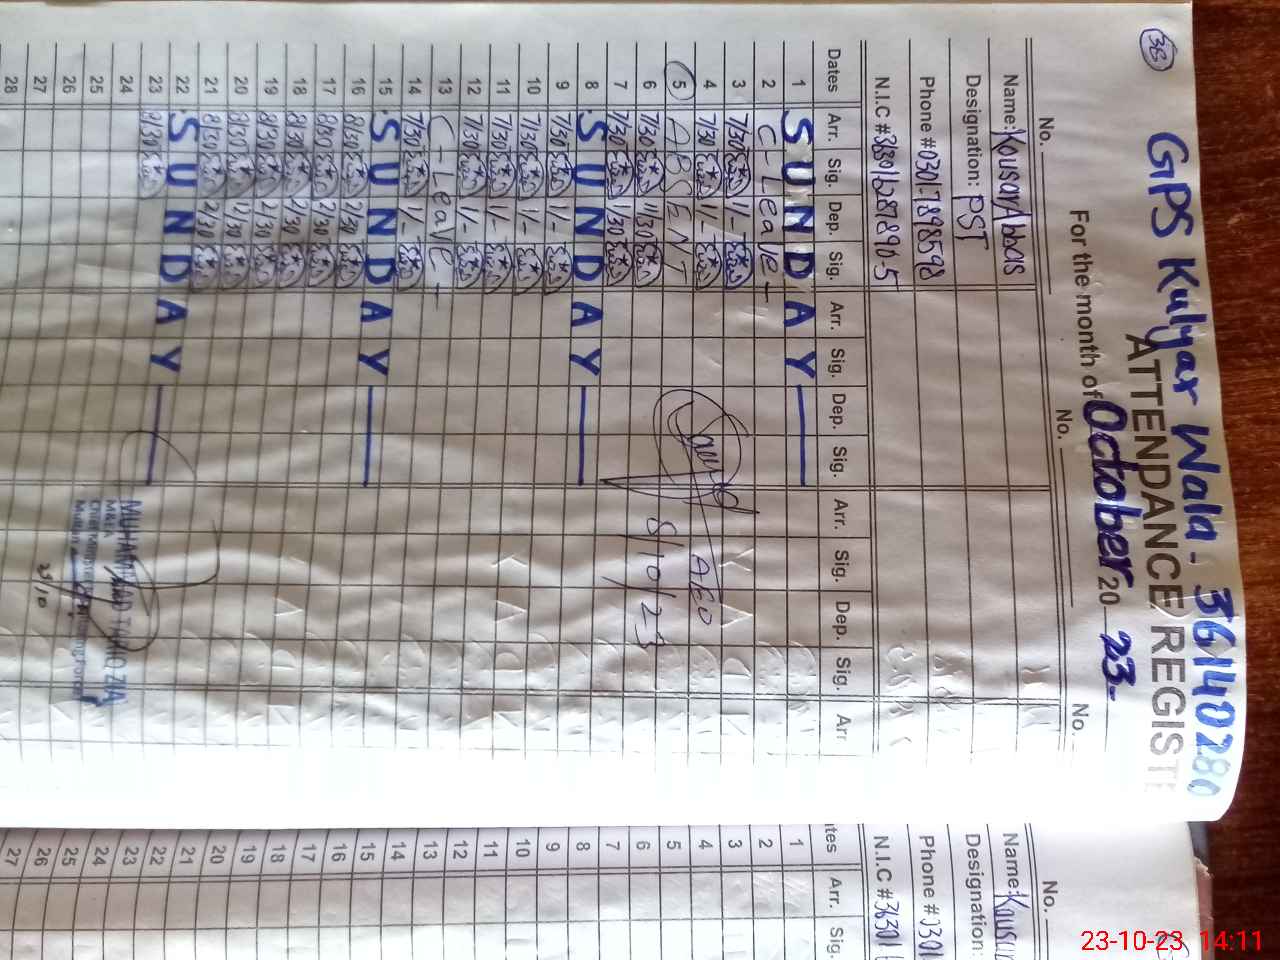 38
GPS Kulyar Wala - 36140280
ATTENDANCE REGISTE
For the month of October 2023-
No. No. No.
Name: Kousar Abbas
Designation: PST
Phone # 03017898598
Dates Arr. Sig. Dep. Sig. Arr. Sig. Dep. Sig. Arr. Sig. Dep. Sig. Arr
1 SUNDAY
2 C-Leave -
3 7/30 1/-
4 7/30 1/- AEO
5 ABSENT
6 7/30 11/30 8/10/23
7 7/30 1/30
8 SUNDAY
9 7/30 1/-
10 7/30 1/-
11 7/30 1/-
12 7/30 1/-
13 C-Leave -
14 7/30 1/-
15 SUNDAY
16 8/30 2/30
17 8/30 2/30
18 8/30 2/30
19 8/30 2/30
20 8/30 12/30
21 8/30 2/30
22 SUNDAY
23 8/30
24 MUHAMMAD TARIQ ZIA
M&EA
25 Chief Minister's Monitoring Force
26
27
28
No.
Name:
Designation:
Phone #
N.I.C #
Arr. Sig.
1
2
3
4
5
6
7
8
9
10
11
12
13
14
15
16
17
18
19
20
21
22
23
24
25
26
27
23-10-23 14:11